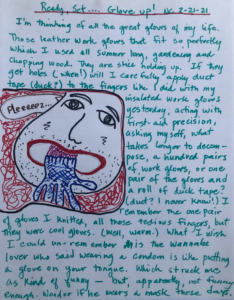 Ready, Set.... Glove up! NC. 2-21-21
I'm thinking of all the great gloves of my life.
Those leather work gloves that fit so perfectly
which I used all summer long, gardening and
chopping wood. They are still holding up. If they
get holes (when!) will I carefully apply duct
tape (duck?) to the fingers like I did with my
insulated work gloves
yesterday, acting with
first-aid precision,
asking myself, what
takes longer to decom-
pose, a hundred pairs
of work gloves, or one
pair of the gloves and
a roll of duck tape?
(duct? I never know!) I
remember the one pair
of gloves I knitted, all those tedious fingers, but
they were cool gloves. (well, warm). What I wish
I could un-remember is the wannabe
lover who said wearing a condom is like putting
a glove on your tongue. Which struck me
as kind of funny - but, apparently, not funny
enough. Wonder if he wears a mask these days.
Pleeeepz...